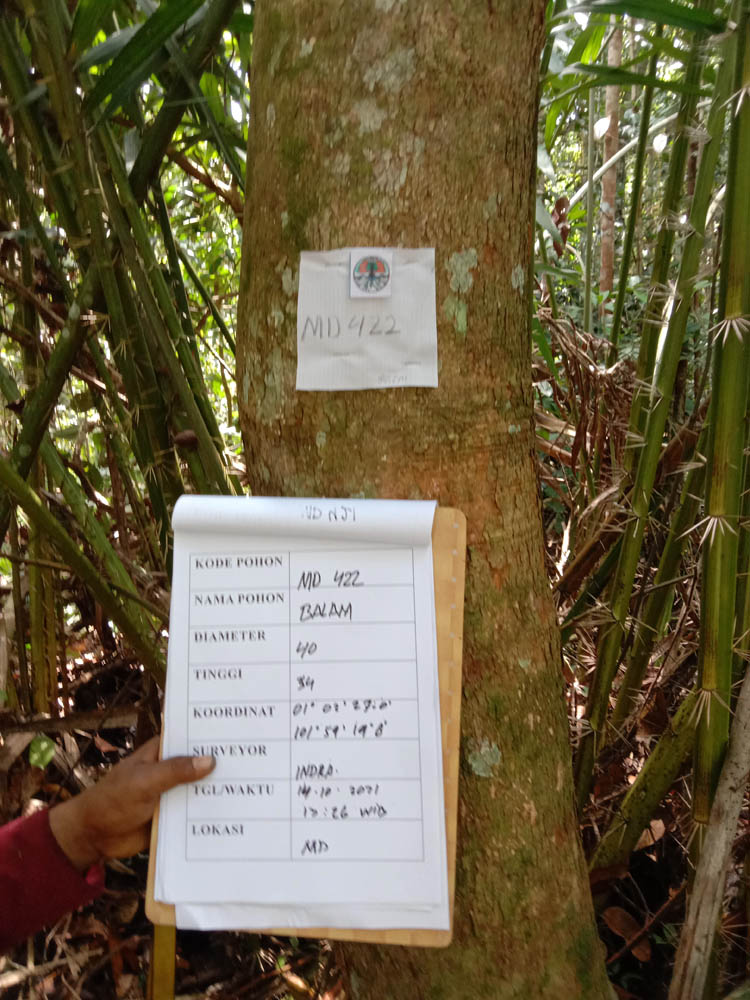 MD 422
KODE POHON MD 422
NAMA POHON BALAM
DIAMETER 40
TINGGI 34
KOORDINAT 01° 02' 27.0"
101° 59' 19.8"
SURVEYOR INDRA.
TGL/WAKTU 14.10.2021
13:26 WIB
LOKASI MD